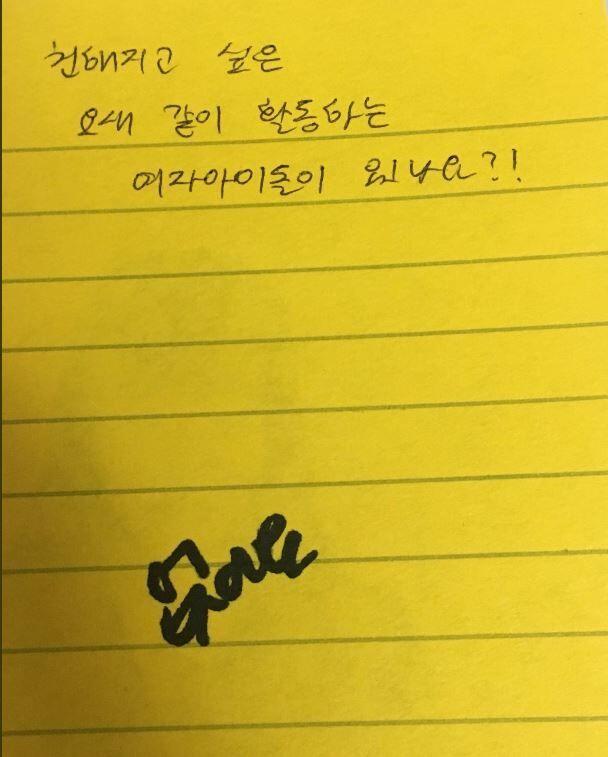 친해지고 싶은
요새 같이 활동하는
여자아이돌이 있나요?!